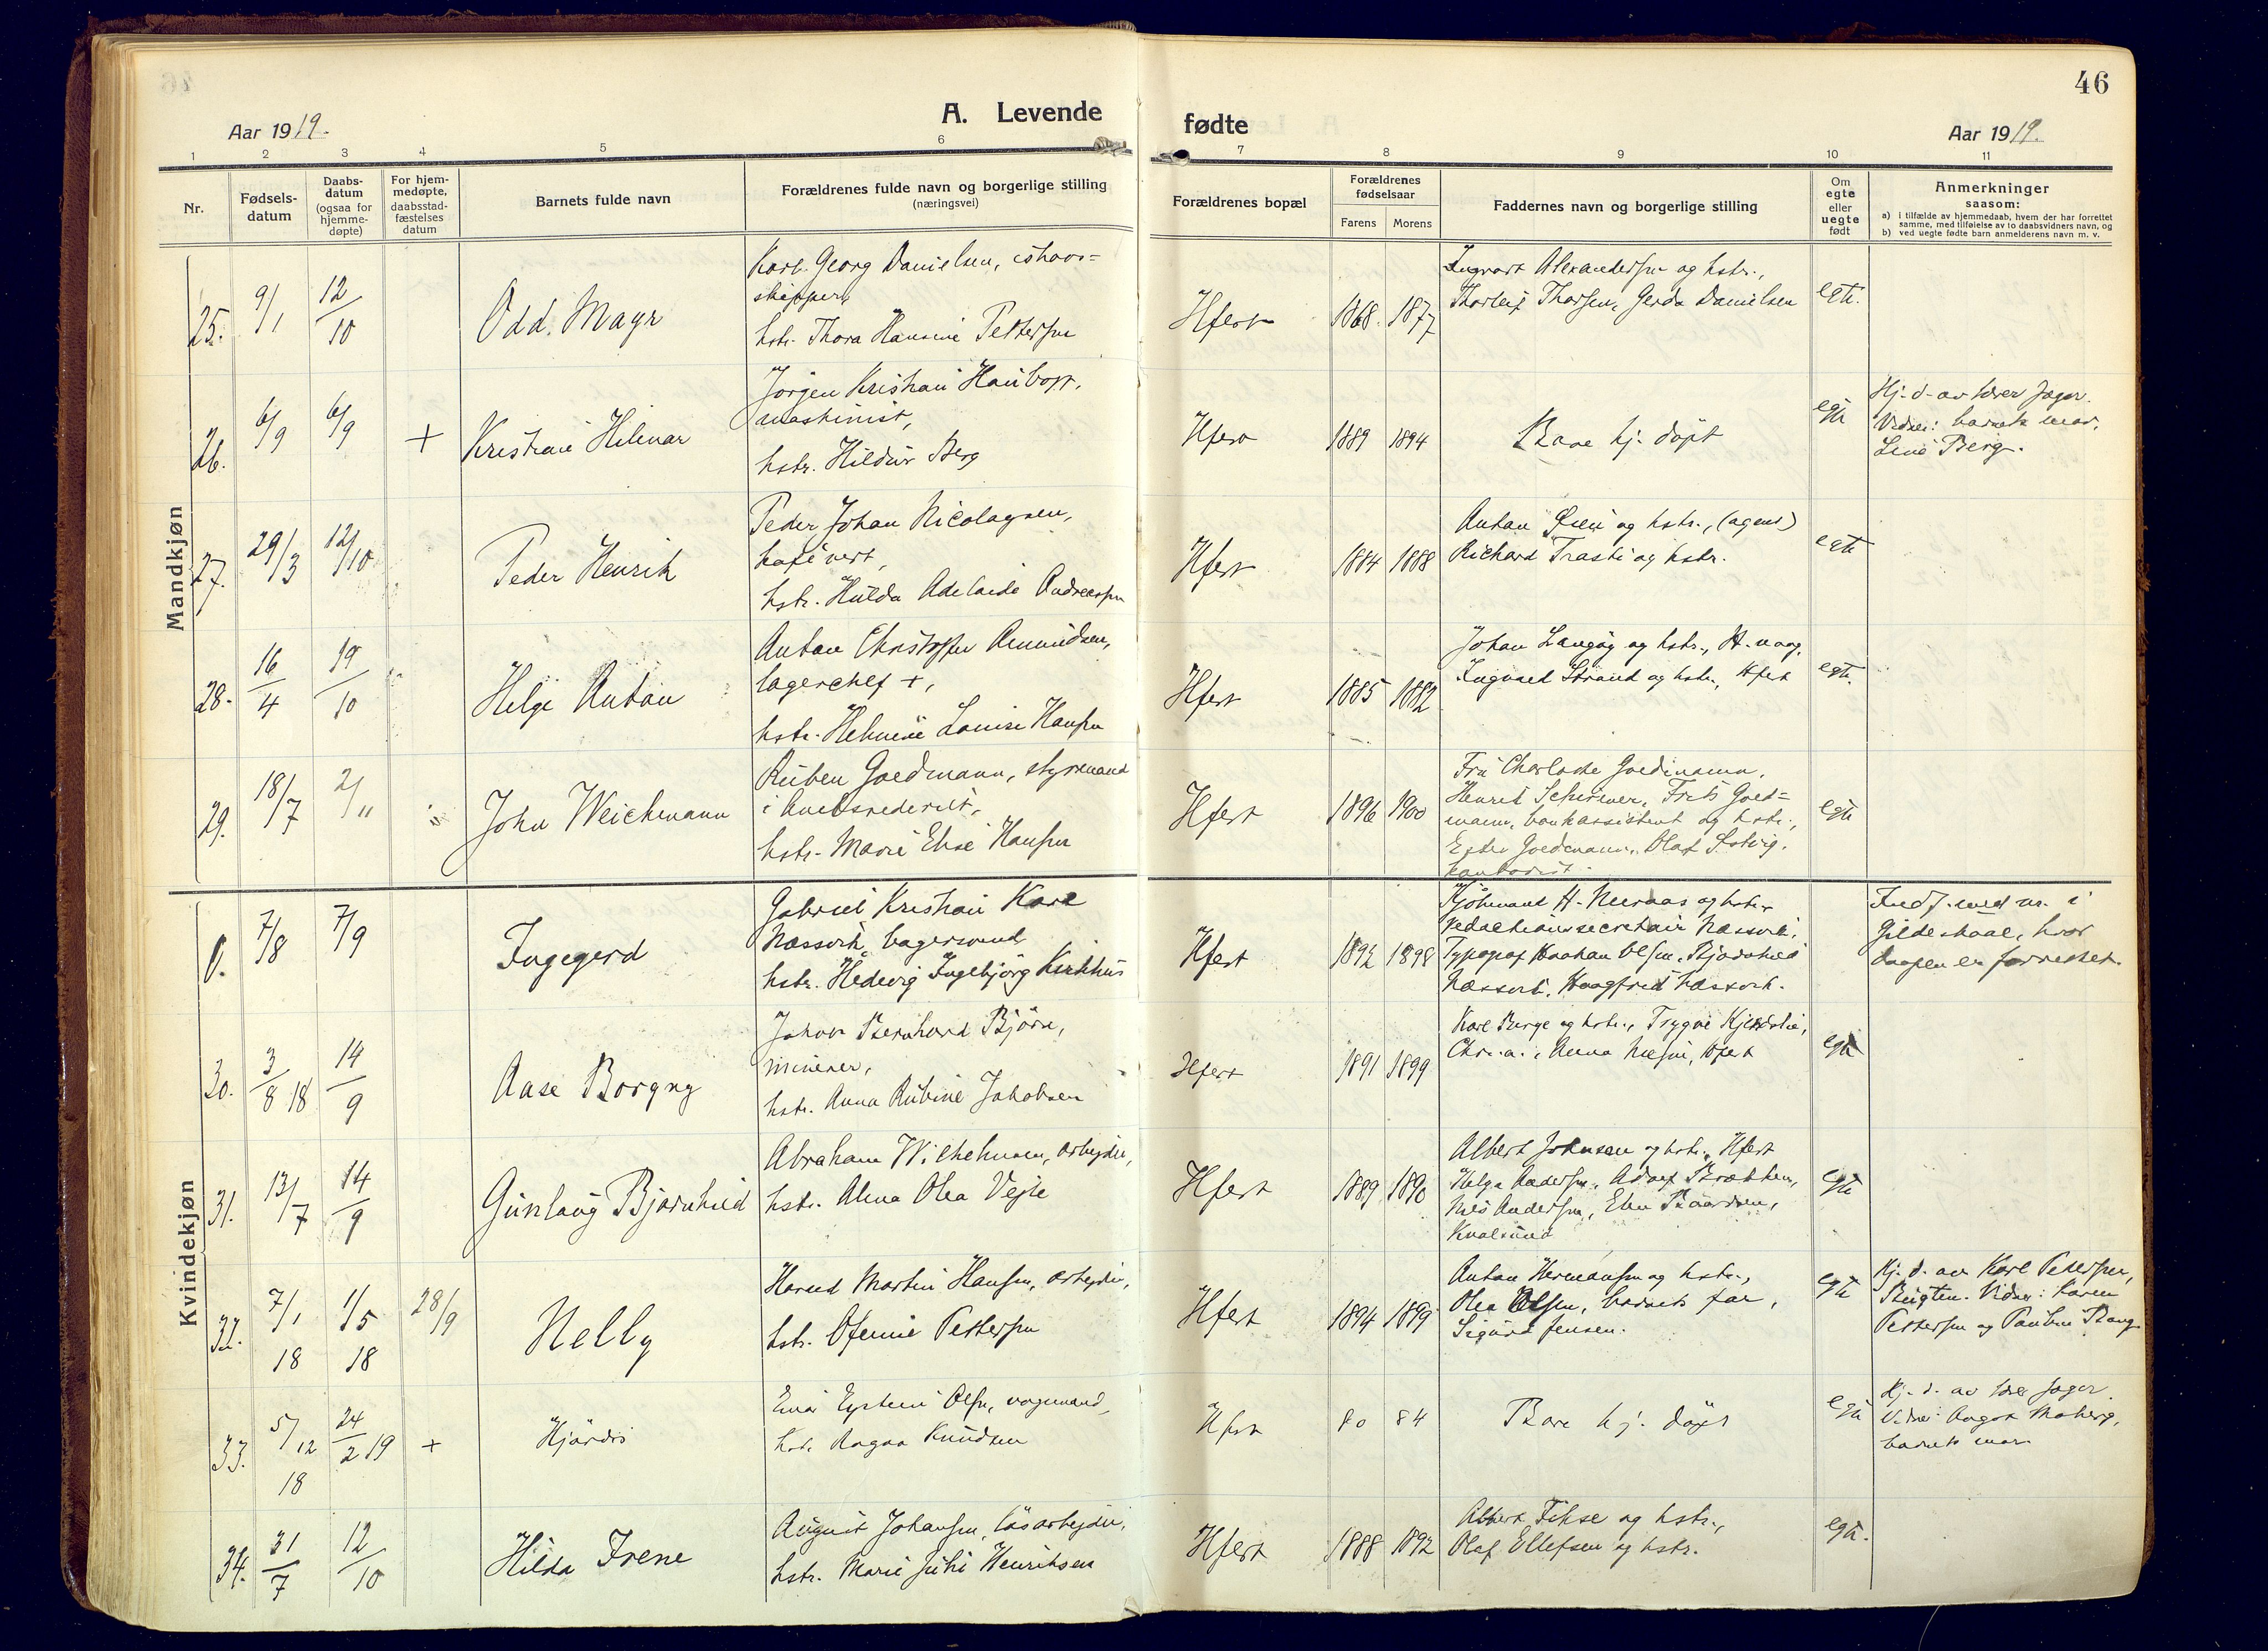 46
A. Levende
fødte
Aar 1919.
Aar 1919.
1 2 3 4 5 6 7 8 9 10 11
Nr.
Fødsels-
datum
Daabs-
datum
(ogsaa for
hjemme-
døpte)
For hjem-
medøpte,
daabsstad-
fæstelses
datum
Barnets fulde navn
Forældrenes fulde navn og borgerlige stilling
(næringsvei)
Forældrenes bopæl
Forældrenes
fødselsaar
Farens Morens
Faddernes navn og borgerlige stilling
Om
egte
eller
uegte
født
Anmerkninger
saasom:
a) i tilfælde av hjemmedaab, hvem der har forrettet
samme, med tilføielse av to daabsvidners navn, og
b) ved uegte fødte barn anmelderens navn m. v.
Mandkjøn
25. 9/1 12/10 Odd. Mayr
Karl Georg Danielsen, ishavs-
skipper,
hstr. Thora Hansine Pettersen
Hfest 1868. 1877
Ingvart Alexandersen og hstr.,
Thorleif Thorsen, Gerda Danielsen
egte.
26. 6/9 6/9 + Kristian Hilmar
Jørgen Kristian
maskinist,
hstr. Hildur Berg
Hfest 1889 1894
Bare hj. døpt
egte
Hj. d. av Jæger.
Vidner: barnets mor,
Line Berg.
27. 29/3 12/10 Peder Henrik
Peder Johan Nicolaysen,
kafévert,
hstr. Hulda Adelaide Andreassen
Hfest 1884 1888
Anton og hstr., (agent)
Richard Trasti og hstr.
egte
28. 16/4 19/10 Helge Anton
Anton Christoffer Amundsen,
lagerchef +,
hstr. Helmine Louise Hansen
Hfest 1885 1882
Johan Langøy og hstr., H.vaag,
Ingvald Strand og hstr., Hfest
egte.
29. 18/7 2/11 John Weichmann
Ruben Goedmann, styrmand
i
hstr. Marie Elise Hansen
Hfest 1896 1900
Fru Charlotte Goedmann,
Henrik Schirmer, Frits Goed-
mann, bankassistent og hstr.,
Ester Goedmann, Olaf
kontorist.
egte
Kvindekjøn
0. 7/8 7/9 Ingegerd
Gabriel Kristian Kore
Næssvik, bagersvend
hstr. Hedevig Ingebjørg
Hfest 1892 1898
H. og hstr.,
redaktionssecretair Næssvik,
Typograf Haakan Olsen, Bjarnhild
Næssvik, Haagfrid Næssvik.
Indf. med nr. i
Gildeskaal, hvor
daapen er forrettet.
30. 3/8 18 14/9 Aase Borgny
Johan Bernhard Bjørn,
minerer,
hstr. Anna Rubine Jakobsen
Hfest 1891 1899
Karl Berge og hstr., Trygve
Chr.a., Anna Nilsen, Hfest
egte
31. 13/7 14/9 Gunlaug Bjarnhild
Abraham Wilhelmsen, arbeider,
hstr. Alma Olea Vejle
Hfest 1889 1890
Albert Johnsen og hstr., Hfest
Helga Andersen, Adolf Brækken,
Nils Andersen, Elen Baardsen,
Kvalsund
egte
32. 7/1 18 1/5 18 28/9 Nelly
Harald Martin Hansen, arbeider,
hstr. Ofemie Pettersen
Hfest 1894 1899
Anton Hermansen og hstr.,
Olea Olsen, barnets far,
Sigurd Jensen.
egte
Hj. d. av Karl Petersen,
Vidner: Karen
Pettersen og Pauline Bang
33. 5/12 18 24/2 19 + Hjørdis
Einar Eystein Olsen, vognmand,
hstr. Ragna Knudsen
Hfest 80 84
Bare hj. døpt
egte
Hj. d. av Jæger
Vidner: Aagot Moberg,
barnets mor.
34. 31/7 12/10 Hilda Irene
August Johansen, løsarbeider,
hstr. Marie Julie Henriksen
Hfest 1888 1892
Albert Fikse og hstr.,
Olaf Ellefsen og hstr.
egte.